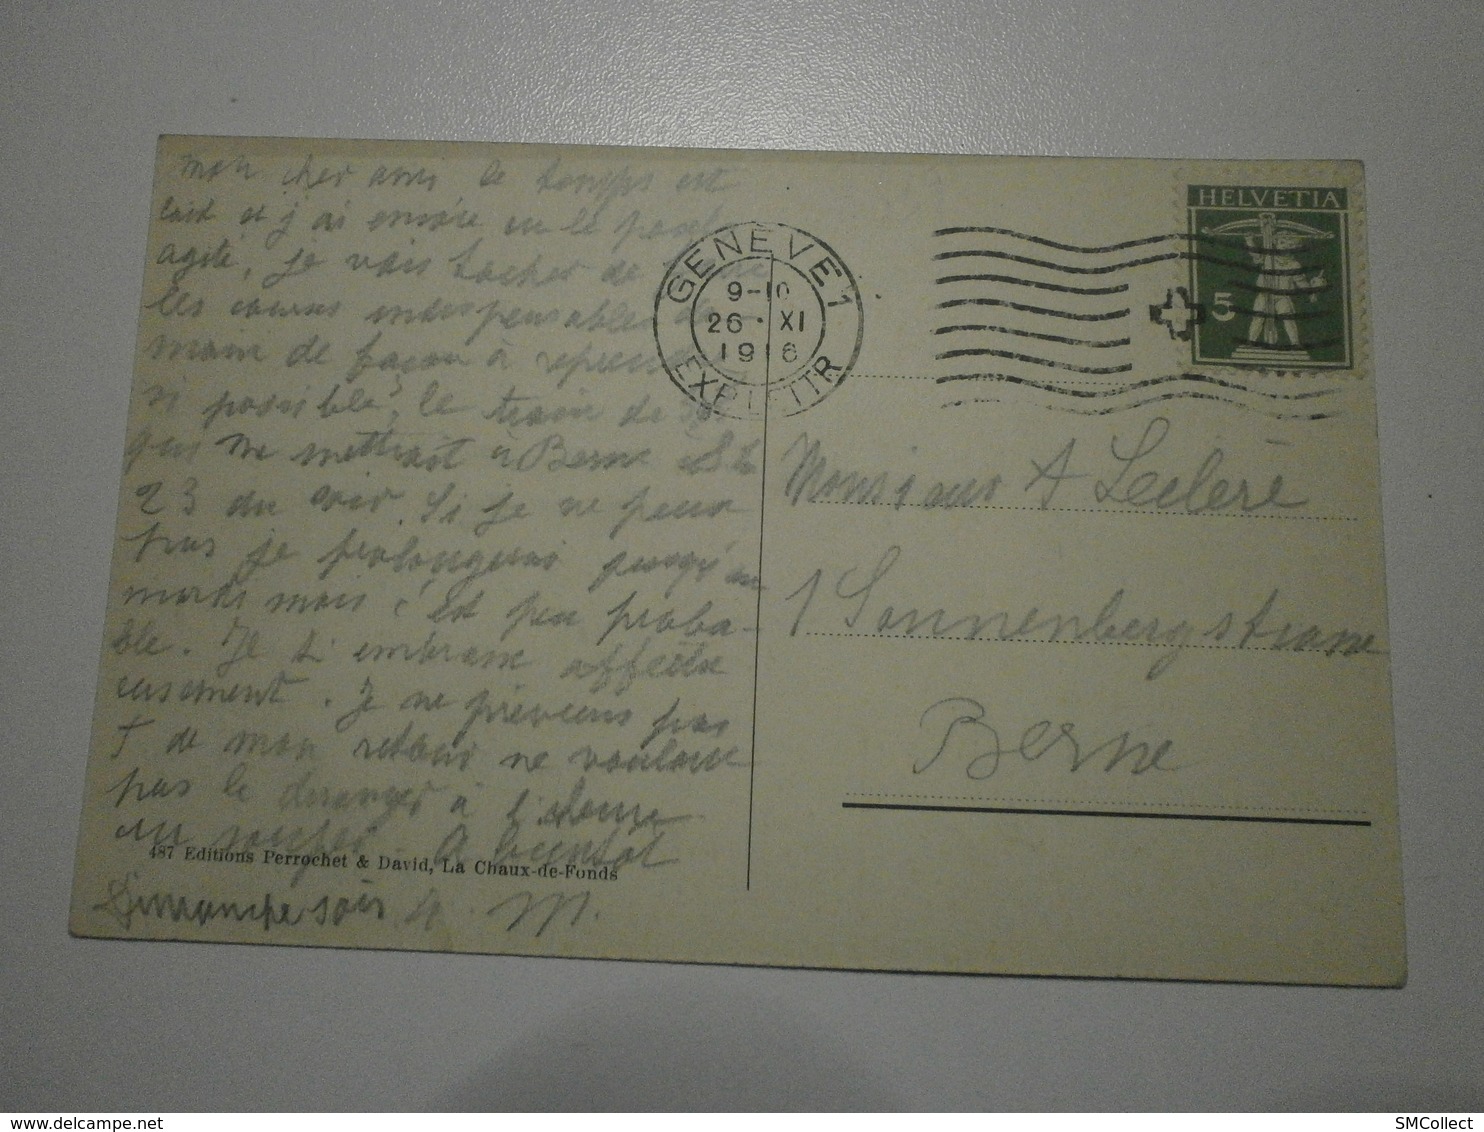 mon cher ami le temps est
laid et j'ai encore eu le
agité, je vais tacher de
les courses indispensables de
main de façon à reprendre
si possible, le train de
qui me mettrait à Berne à
23 du soir. Si je ne peux
pas je prolongerai jusqu'au
mardi mais c'est peu proba-
ble. Je t'embrasse affectu
eusement. Je ne préviens pas
T de mon retour ne voulant
pas le déranger à
au souper. A bientot
487 Editions Perrochet & David, La Chaux-de-Fonds
Dimanche soir M.
GENÈVE 1
9-10
26·XI
1916
EXP. LETTR
HELVETIA
5
Monsieur A Leclerè
1 Sonnenbergstrasse
Berne
SMCollect
www.delcampe.net